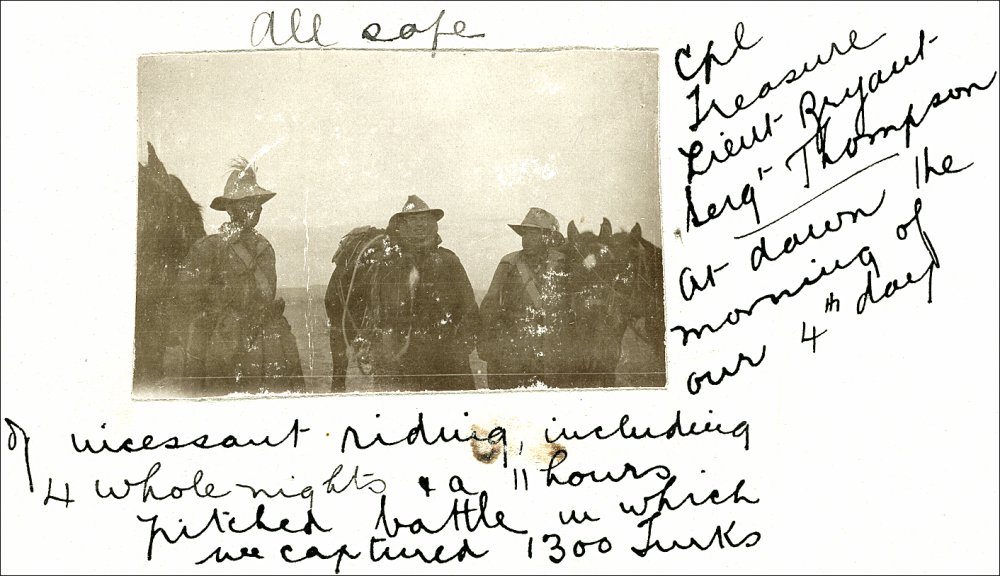 All safe
Cpl
Treasure
Lieut Bryant
Sergt Thompson
At dawn the
morning of
our 4th day
of incessant riding, including
4 whole nights & a 11 hours
pitched battle in which
we captured 1300 Turks